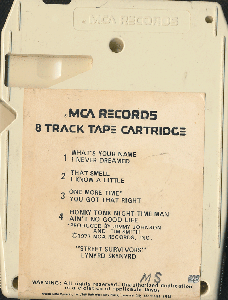 MCA RECORDS
8 TRACK TAPE CARTRIDGE
1 WHAT'S YOUR NAME
I NEVER DREAMED
2 THAT SMELL
I KNOW A LITTLE
3 ONE MORE TIME*
YOU GOT THAT RIGHT
4 HONKY TONK NIGHT TIME MAN
AIN'T NO GOOD LIFE
*PRODUCED BY JIMMY JOHNSON
AND TIM SMITH
©1977 MCA RECORDS, INC.
"STREET SURVIVORS"
LYNYRD SKYNYRD
MS
WARNING: All rights reserved. Unauthorized duplication